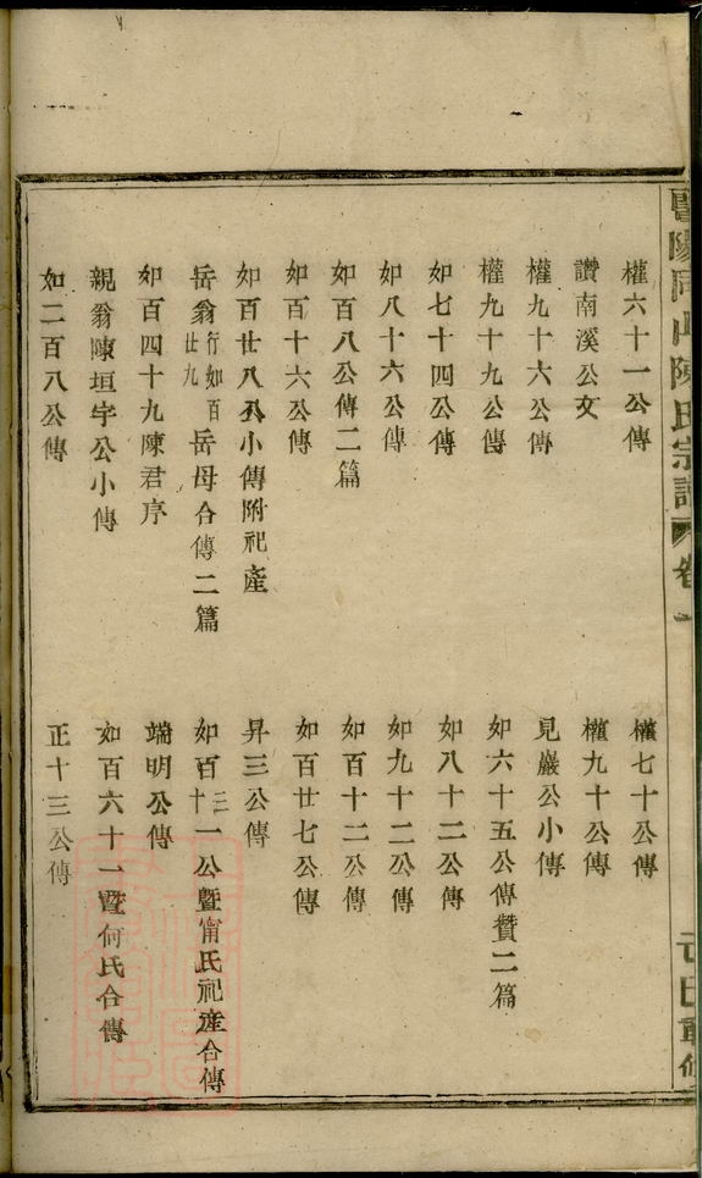 暨陽同山陳氏宗譜 卷一
權六十一公傳
權七十公傳
讚南溪公文
權九十公傳
權九十六公傳
見巖公小傳
權九十九公傳
如六十五公傳贊二篇
如七十四公傳
如八十二公傳
如八十六公傳
如九十二公傳
如百八公傳二篇
如百十二公傳
如百十六公傳
如百廿七公傳
如百廿八公小傳附祀產
昇三公傳
岳翁行如百廿九岳母合傳二篇
如百三十一公暨甯氏祀產合傳
如百四十九陳君序
端明公傳
親翁陳垣宇公小傳
如百六十一暨何氏合傳
如二百八公傳
正十三公傳